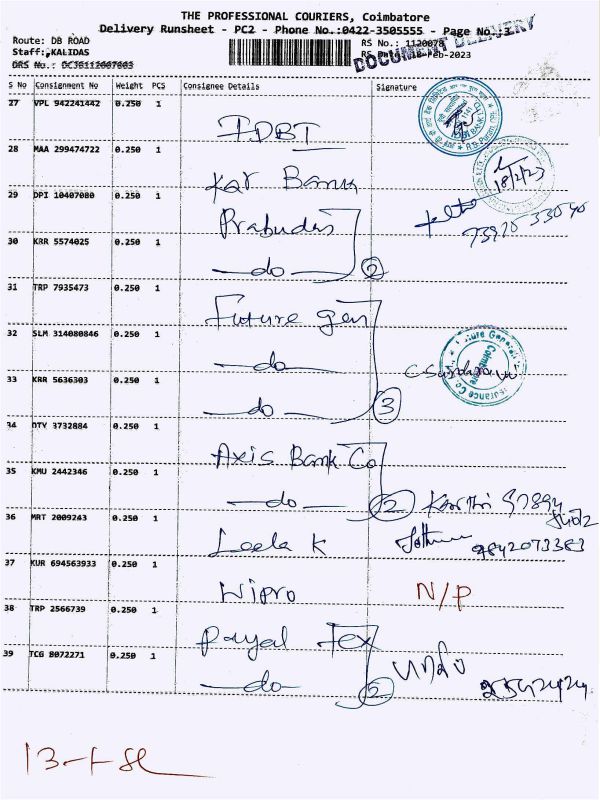 THE PROFESSIONAL COURIERS, Coimbatore
Delivery Runsheet - PC2 - Phone No.:0422-3505555 - Page No.:3
Route: DB ROAD RS No.: 1120078
Staff: KALIDAS -Feb-2023
DRS No.: DCJ6112007003
DOCUMENT DELIVERY
S No Consignment No Weight PCS Consignee Details Signature
27 VPL 942241442 0.250 1 IDBI
28 MAA 299474722 0.250 1 Kar Bank 18/2/23
29 DPI 10407080 0.250 1 Prabudas
30 KRR 5574025 0.250 1 -do- 2
31 TRP 7935473 0.250 1 Future Gen
32 SLM 314080846 0.250 1 -do-
33 KRR 5636303 0.250 1 -do- 3
34 DTY 3732884 0.250 1 Axis Bank Co
35 KMU 2442346 0.250 1 -do- 2
36 MRT 2009243 0.250 1 Leela K 9842073383
37 KUR 694563933 0.250 1 Wipro N/P
38 TRP 2566739 0.250 1 Payal Tex
39 TCG 8072271 0.250 1 -do- 2